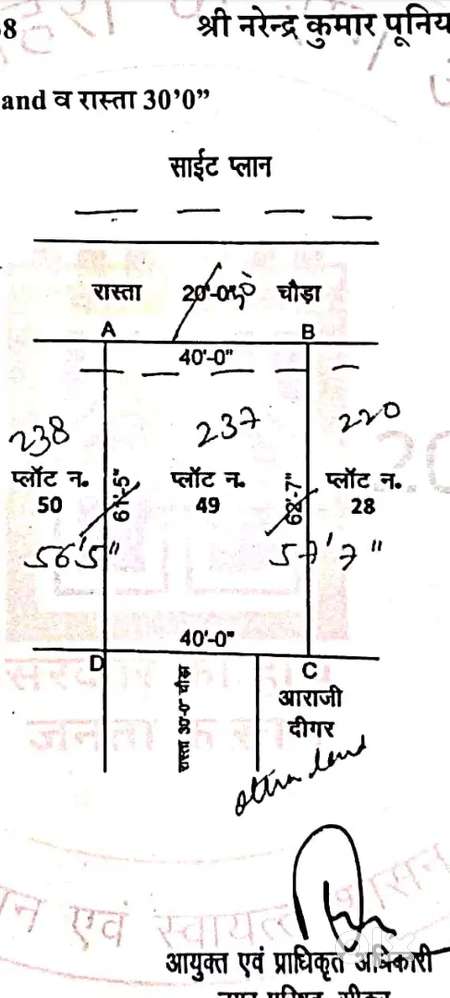 8 श्री नरेन्द्र कुमार पूनिय
and व रास्ता 30’0”
साईट प्लान
रास्ता 20'-0" 30' चौड़ा
A B
40'-0"
238 237 220
प्लॉट न. प्लॉट न. प्लॉट न.
50 49 28
61'-5" 62'-7"
56'5" 57'7"
40'-0"
D C
रास्ता 30'-0" चौड़ा
आराजी
दीगर
other land
सरकार
जनता के
एवं स्वायत्त शासन
आयुक्त एवं प्राधिकृत अधिकारी
नगर परिषद, सीकर